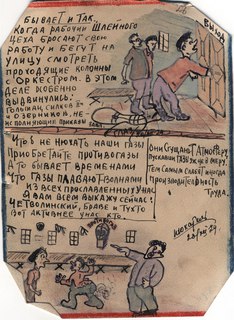 БЫВАЕТ И ТАК,
КОГДА РАБОЧИЕ ШЛЕЙНОГО
ЦЕХА БРОСАЮТ СВОЮ
РАБОТУ И БЕГУТ НА
УЛИЦУ СМОТРЕТЬ
ПРОХОДЯЩИЕ КОЛОННЫ
С ОРКЕСТРОМ. В ЭТОМ
ДЕЛЕ ОСОБЕННО
ВЫДВИНУЛИСЬ,
И ОЗЕРНИКОВ, НЕ
ВЫХОД
ЧТОБ НЕ НЮХАТЬ НАШИ ГАЗЫ
ПРИОБРЕТАЙТЕ ПРОТИВОГАЗЫ
А ТО БЫВАЕТ ВРЕМЕНАМИ
ЧТО ГАЗЫ ПАДАЮТ ВОЛНАМИ
ИЗ ВСЕХ ПРОСЛАВЛЕННЫХ У НАС
Я ВАМ ВСЕМ ВЫКАЖУ СЕЙЧАС!
ЧЕТВОЛИНСКИЙ, БРАВЕ И ТУХТО
ВОТ АКТИВНЕЕ У НАС КТО
ОНИ СГУЩАЮТ АТМОСФЕРУ
ПУСКАЯ ГАЗЫ
ТЕМ САМЫМ
ПРОИЗВОДИТЕЛЬНОСТЬ
ТРУДА.